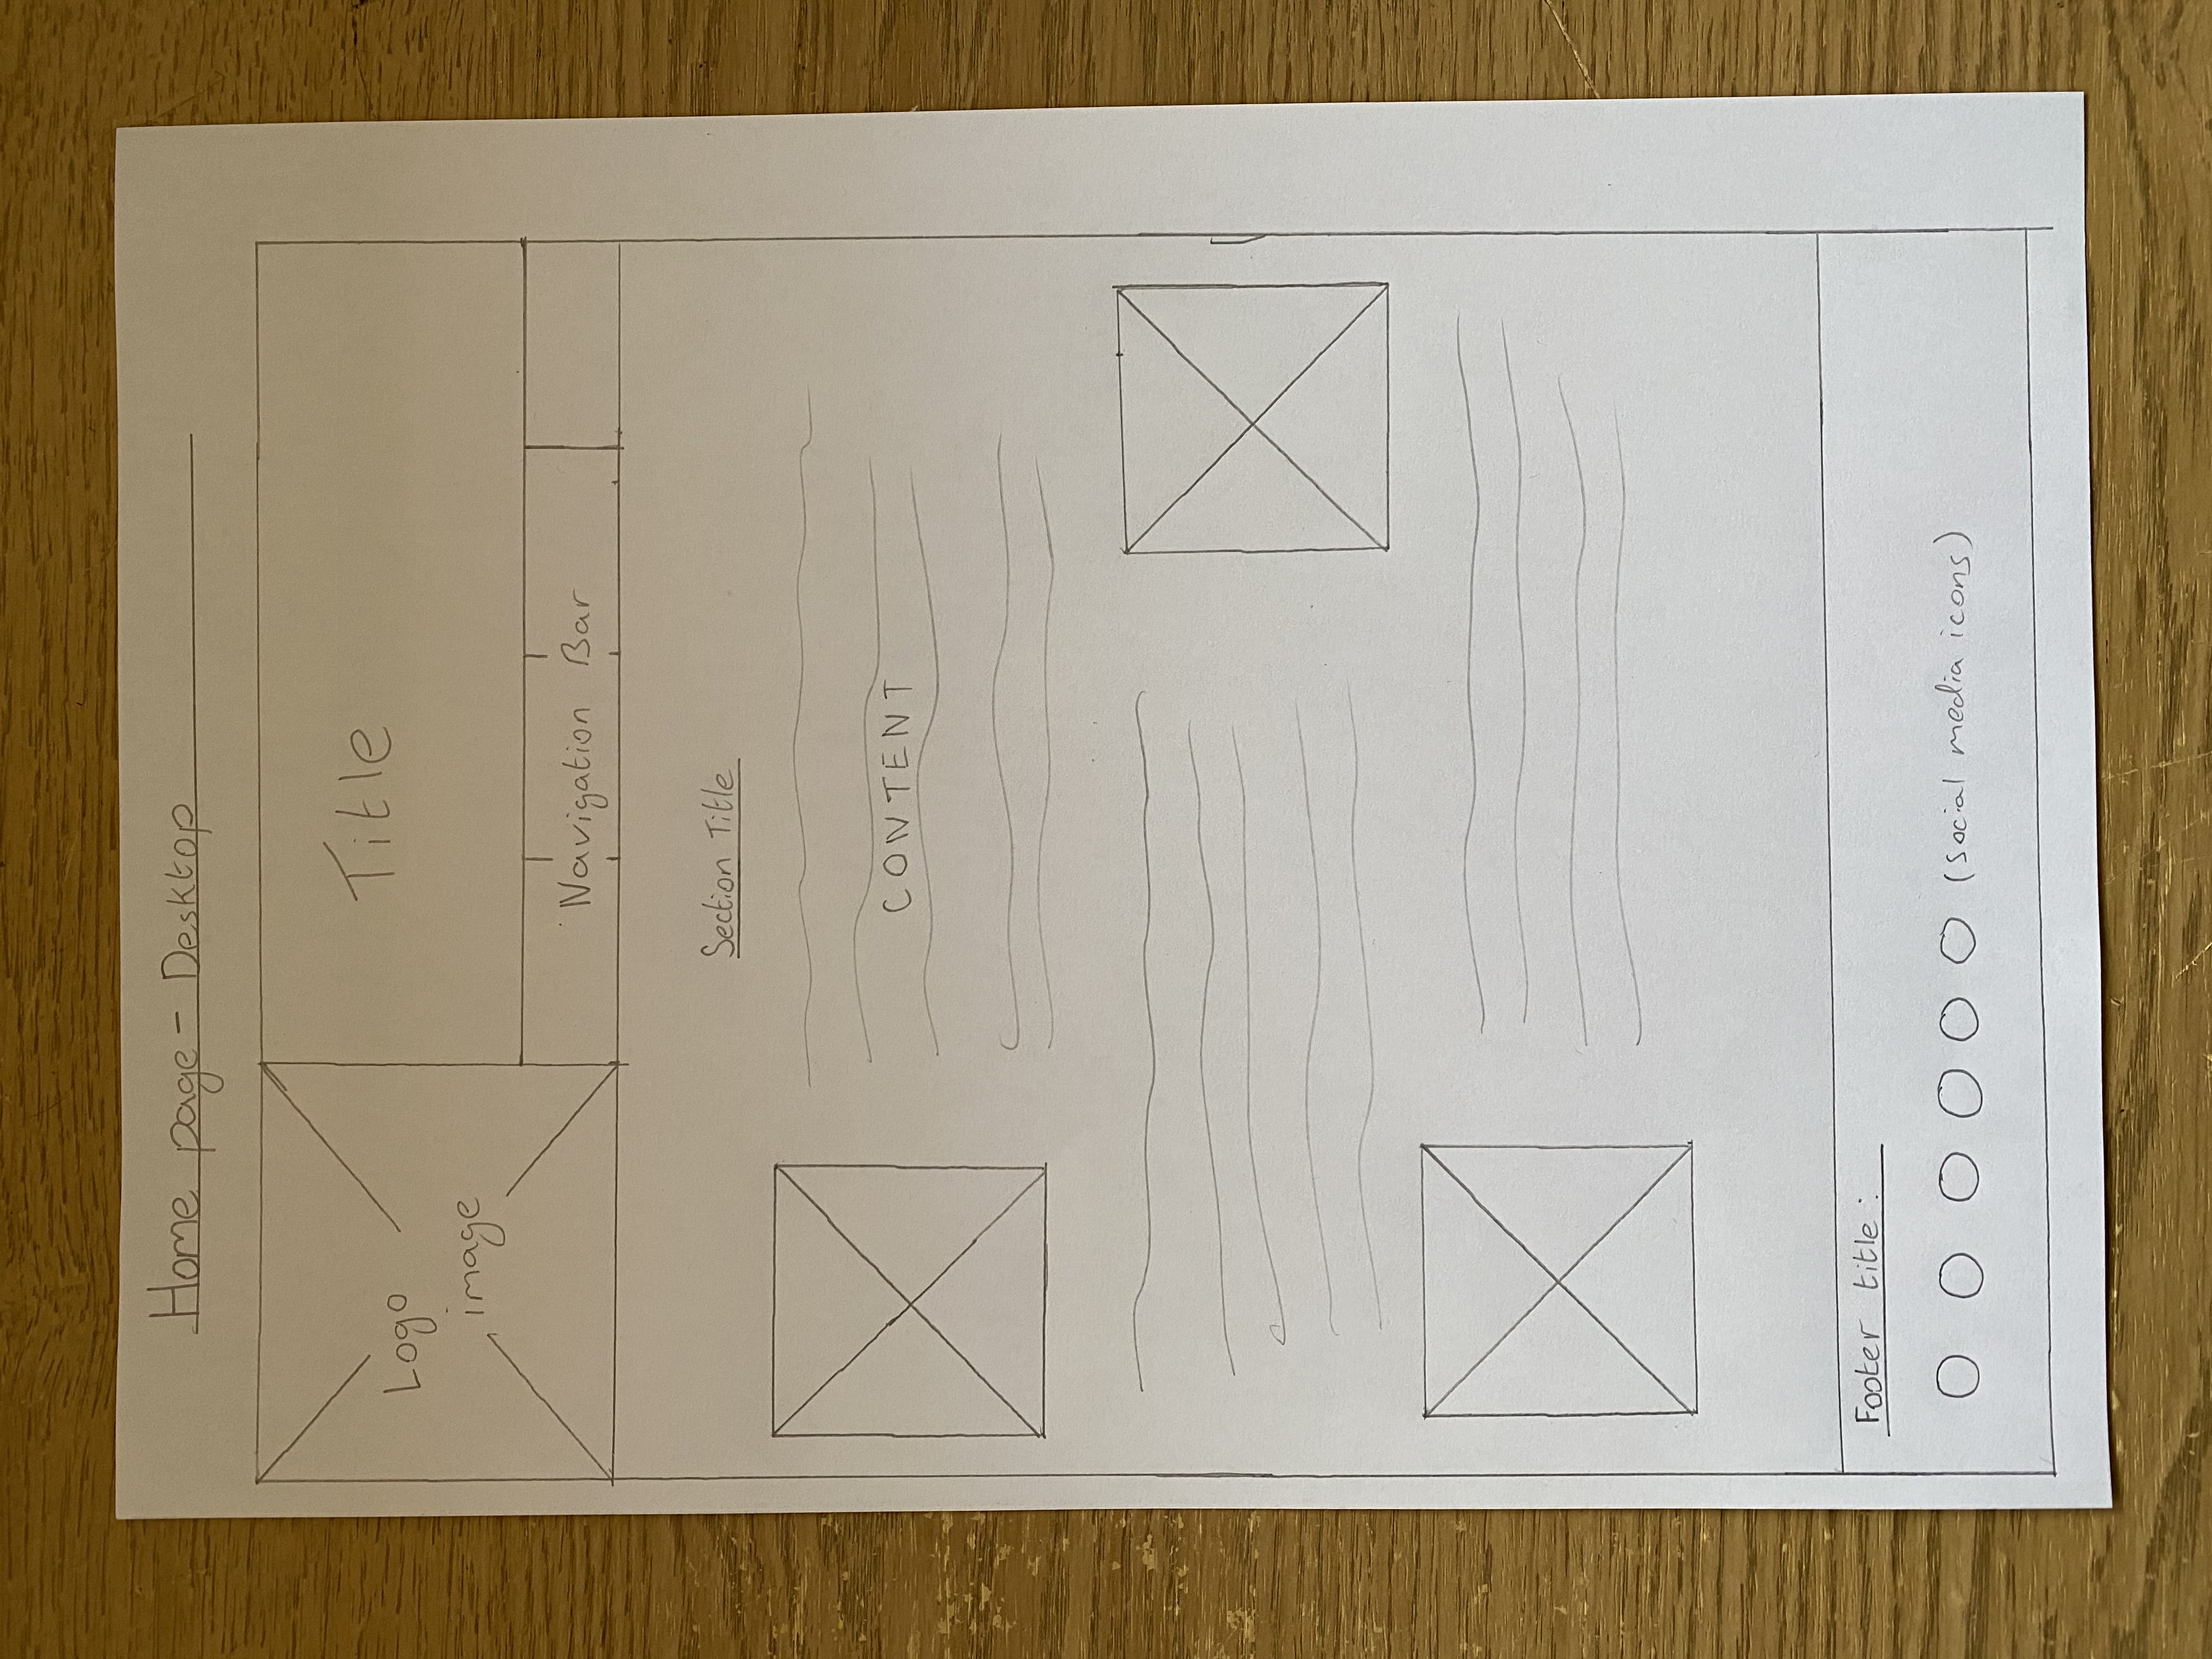 Home page - Desktop
Logo
image
Title
Navigation Bar
Section Title
CONTENT
Footer title :
(social media icons)